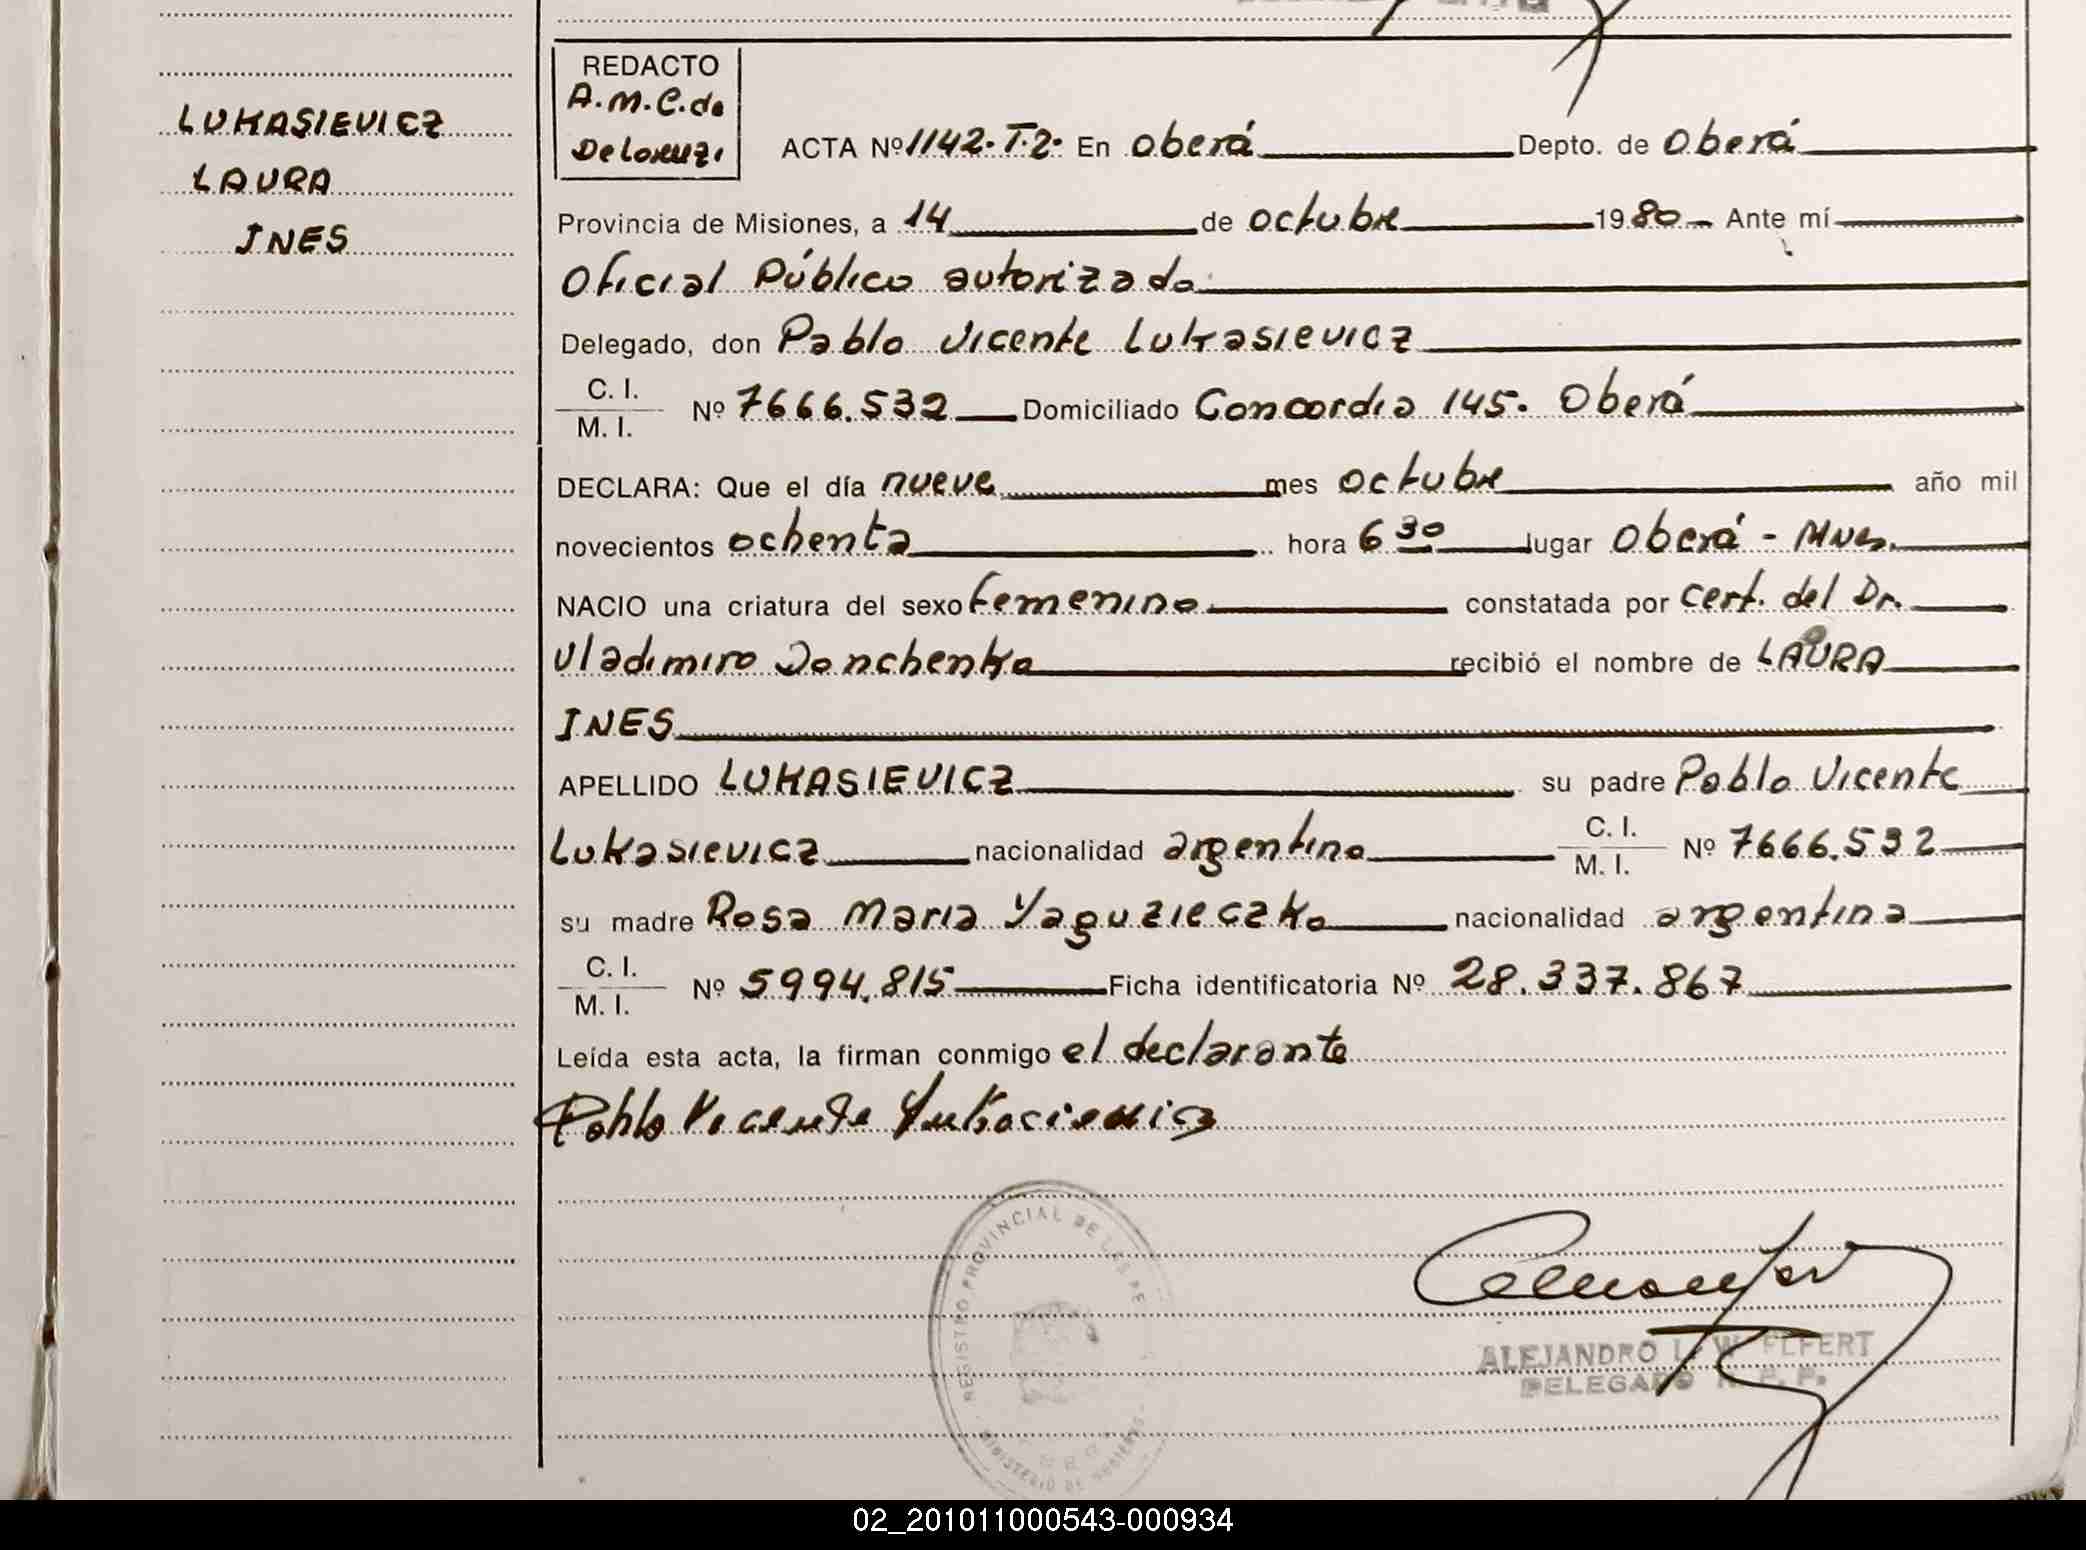 LUKASIEVICZ
LAURA
INES
REDACTO
A.M.C.de
De Lorenzi
ACTA Nº 1142.T.2. En Oberá Depto. de Oberá
Provincia de Misiones, a 14 de octubre 1980 Ante mí
Oficial Público autorizado
Delegado, don Pablo Vicente Lukasievicz
C. I.
M. I.
Nº 7666.532 Domiciliado Concordia 145. Oberá
DECLARA: Que el día nueve mes octubre año mil
novecientos ochenta hora 6 30 lugar Oberá - Mnes.
NACIO una criatura del sexo femenino constatada por cert. del Dr.
Vladimiro Donchenko recibió el nombre de LAURA
INES
APELLIDO LUKASIEVICZ su padre Pablo Vicente
Lukasievicz nacionalidad argentino C. I. M. I. Nº 7666.532
su madre Rosa Maria Yaguzieczko nacionalidad argentina
C. I.
M. I.
Nº 5994.815 Ficha identificatoria Nº 28.337.867
Leída esta acta, la firman conmigo el declarante
Pablo Vicente Lukasievicz
REGISTRO PROVINCIAL DE LAS PE
MINISTERIO DE GOBIERNO
ALEJANDRO
DELEGADO R. P. P.
02_201011000543-000934